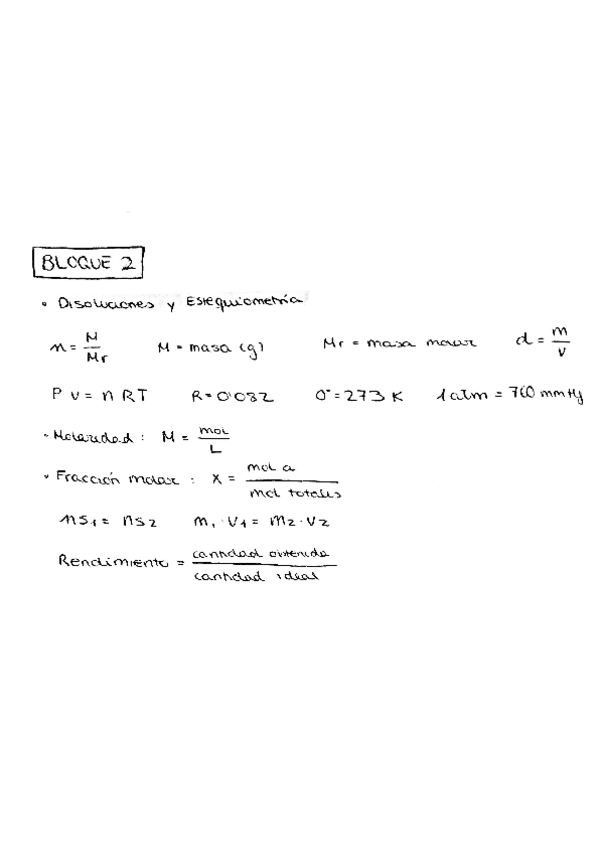 BLOQUE 2
• Disoluciones y Estequiometría
n = M/Mr   M = masa (g)   Mr = masa molar   d = m/v
P V = n RT   R = 0'082   0° = 273 K   1 atm = 760 mmHg
• Molaridad : M = mol/L
• Fracción molar : X = mol a/mol totales
ns1 = ns2   m1 · V1 = m2 · V2
Rendimiento = cantidad obtenida/cantidad ideal